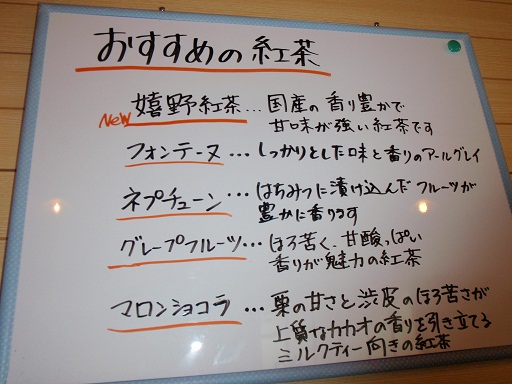 おすすめの紅茶
New 嬉野紅茶…国産の香り豊かで
甘味が強い紅茶です
フォンテーヌ…しっかりとした味と香りのアールグレイ
ネプチューン…はちみつに漬け込んだフルーツが
豊かに香ります
グレープフルーツ…ほろ苦く、甘酸っぱい
香りが魅力の紅茶
マロンショコラ…栗の甘さと渋皮のほろ苦さが
上質なカカオの香りを引き立てる
ミルクティー向きの紅茶